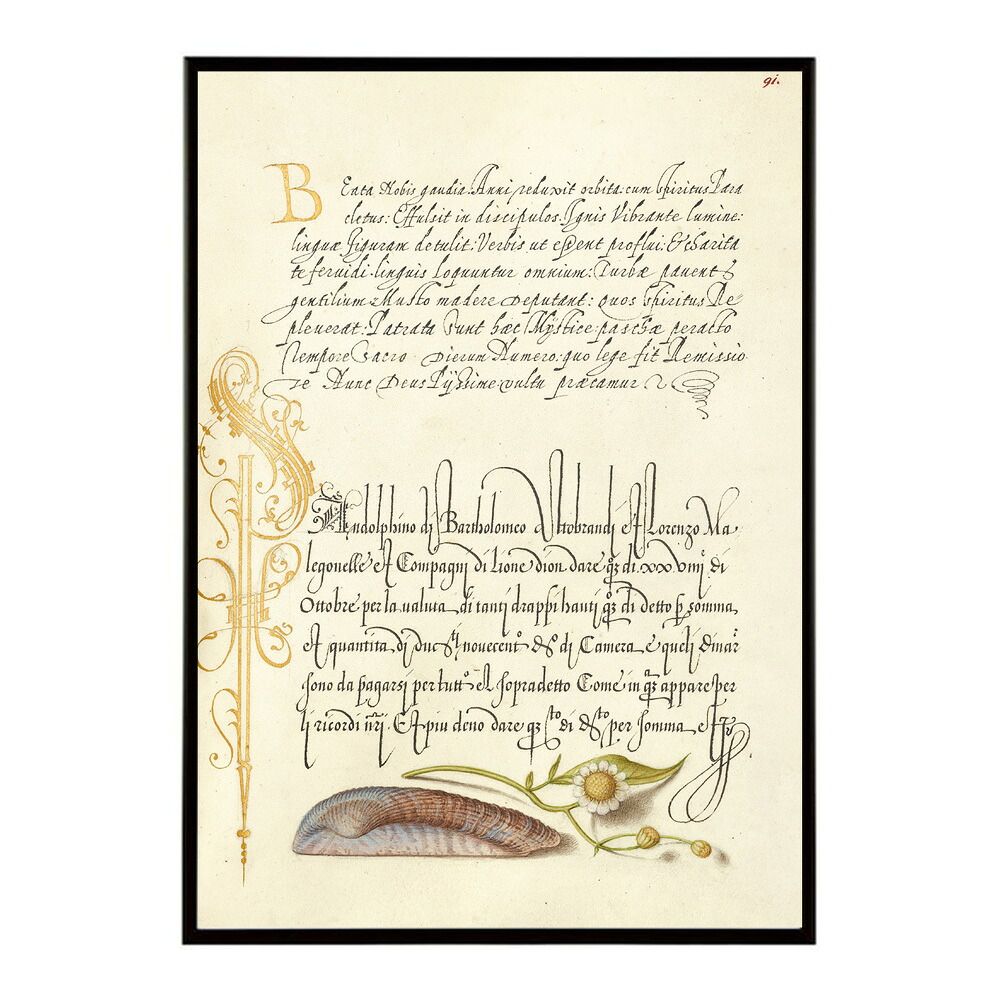 91.
Beata Nobis gaudia. Anni reduxit orbita: cum Spiritus Para
cletus: Effulsit in discipulos. Ignis Vibrante lumine:
linguæ figuram detulit: Verbis ut essent proflui: & Charita
te fervidi. linguis loquuntur omnium: Turbæ pavent
gentilium Musto madere deputant: quos Spiritus Re
pleverat: Patrata sunt hæc Mystice: paschæ peracto
Tempore Sacro dierum Numero: quo lege fit Remissio
Te Nunc Deus Pijssime vultu præcamur
Andolphino di Bartholomeo Altobrandi et Lorenzo Ma
legonelle et Compagni di Lione dion dare qz di xxviiij di
Ottobre per la valuta di tanti drappi hauti qz di detto p somma
Et quantita di duc.ti novecento di Camera e queli dinar
sono da pagarsi per tutto el sopradetto Come in qz appare per
li ricordi nri. Et piu deno dare qz to di dto per somma et